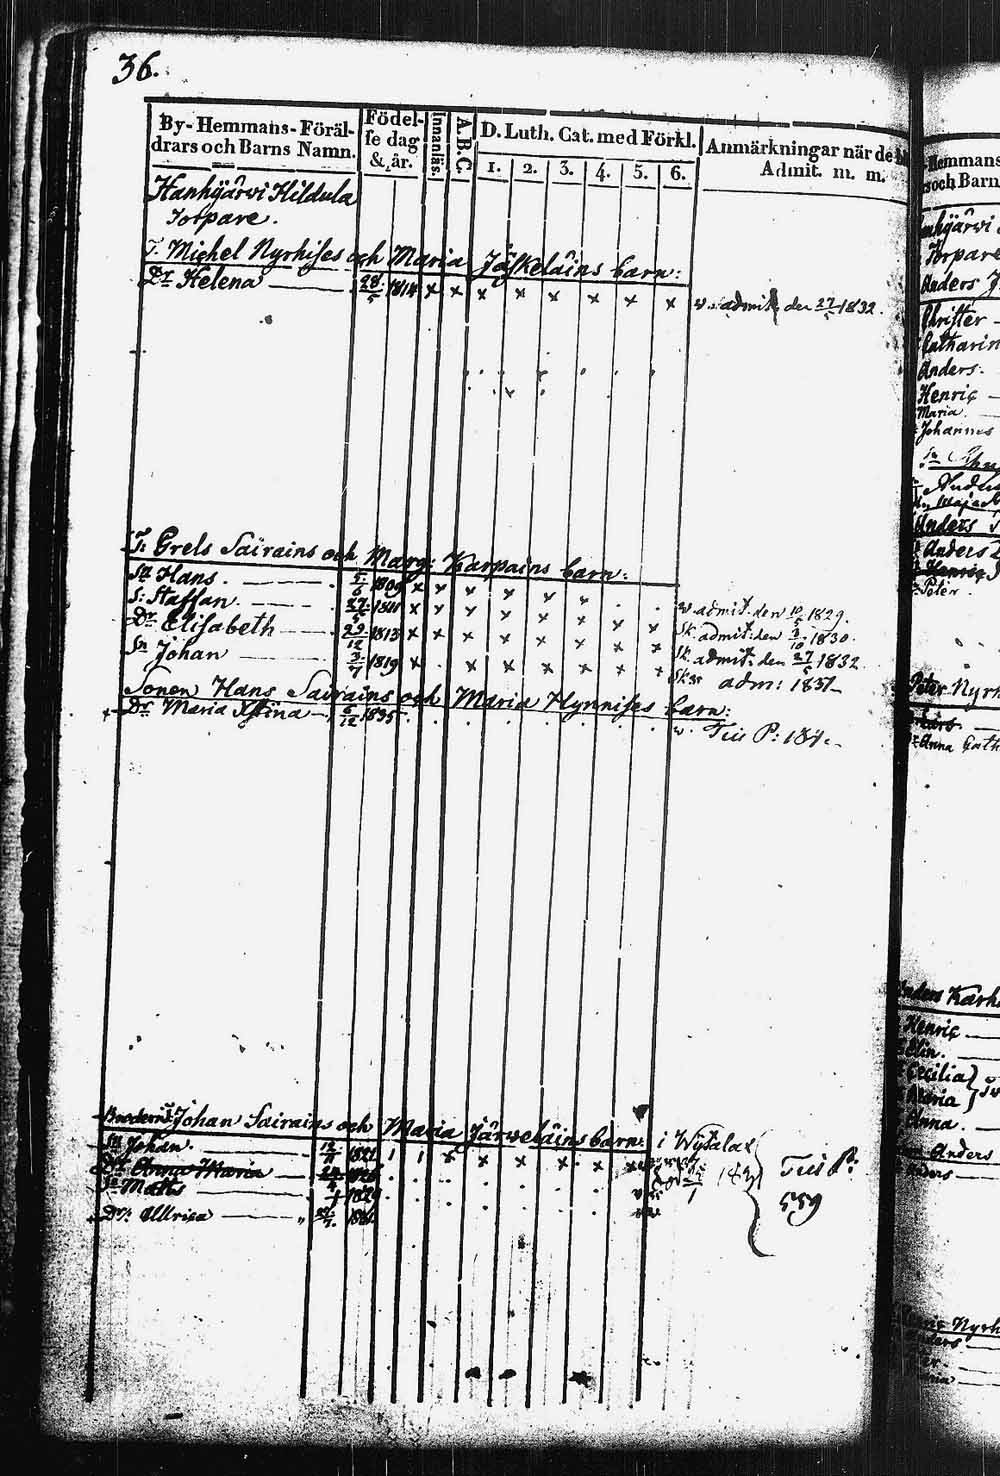 36.
By-Hemmans-Föräl-
drars och Barns Namn.
Födel-
se dag
& år.
Innanläs.
A.B.C.
D. Luth. Cat. med Förkl.
1. 2. 3. 4. 5. 6.
Anmärkningar när de bl
Admit. m. m.
Hanhijärwi Hildula
Torpare.
T. Michel Nyrhises och Maria Jäskeläins barn:
Dr Helena 28/5 1814 x x x x x x x x w. admit. den 27/5 1832.
T: Grels Sairains och Marg: Karpains barn:
Sn Hans. 5/6 1809 x x x x x x . . w. admit. den 10/5 1829.
S: Staffan. 27/5 1811 x x x x x x x x Sk. admit: den 3/10 1830.
Dr Elisabeth 29/12 1813 x x x x x x x x Sk. admit: den 27/5 1832
Sn Johan 3/7 1819 x . x x x x x x adm: 1837
Sonen Hans Sairains och Maria Hynnises barn:
Dr Maria Xstina 6/12 1835 w. Tii P: 187.
Brodern Johan Sairains och Maria Järweläins barn: i Wystalax
Sn Johan. 1821 1 1 x x x x x x
Dr Anna Maria
Sn Matts 1829 Tii P:
Dr: Ullrica 559
Hemmans
och Barn
Torpare
Anders
Christer
Catharin
Anders.
Henric
Maria
Johannes
Anders
Anders
Peter.
Peter Nyrh
Lars
Anna Cath
Anders Karh
Henric
Elin.
Cecilia
Maria
Anna.
Anders
Anders
Nyrh